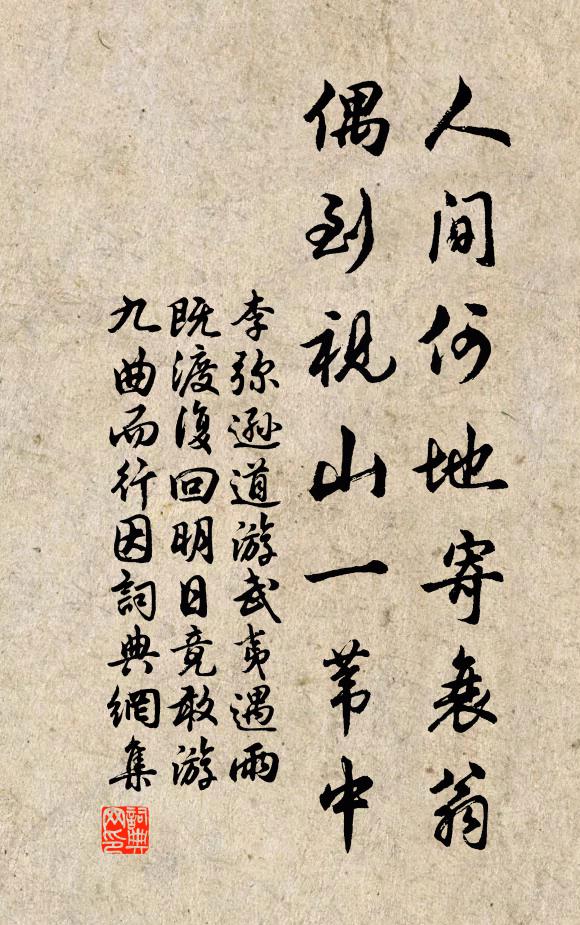 人间何地寄衰翁
偶到视山一苇中
李弥逊道游武夷遇雨
既渡复回明日竟敢游
九曲而行因詞典網集
詞典
网印